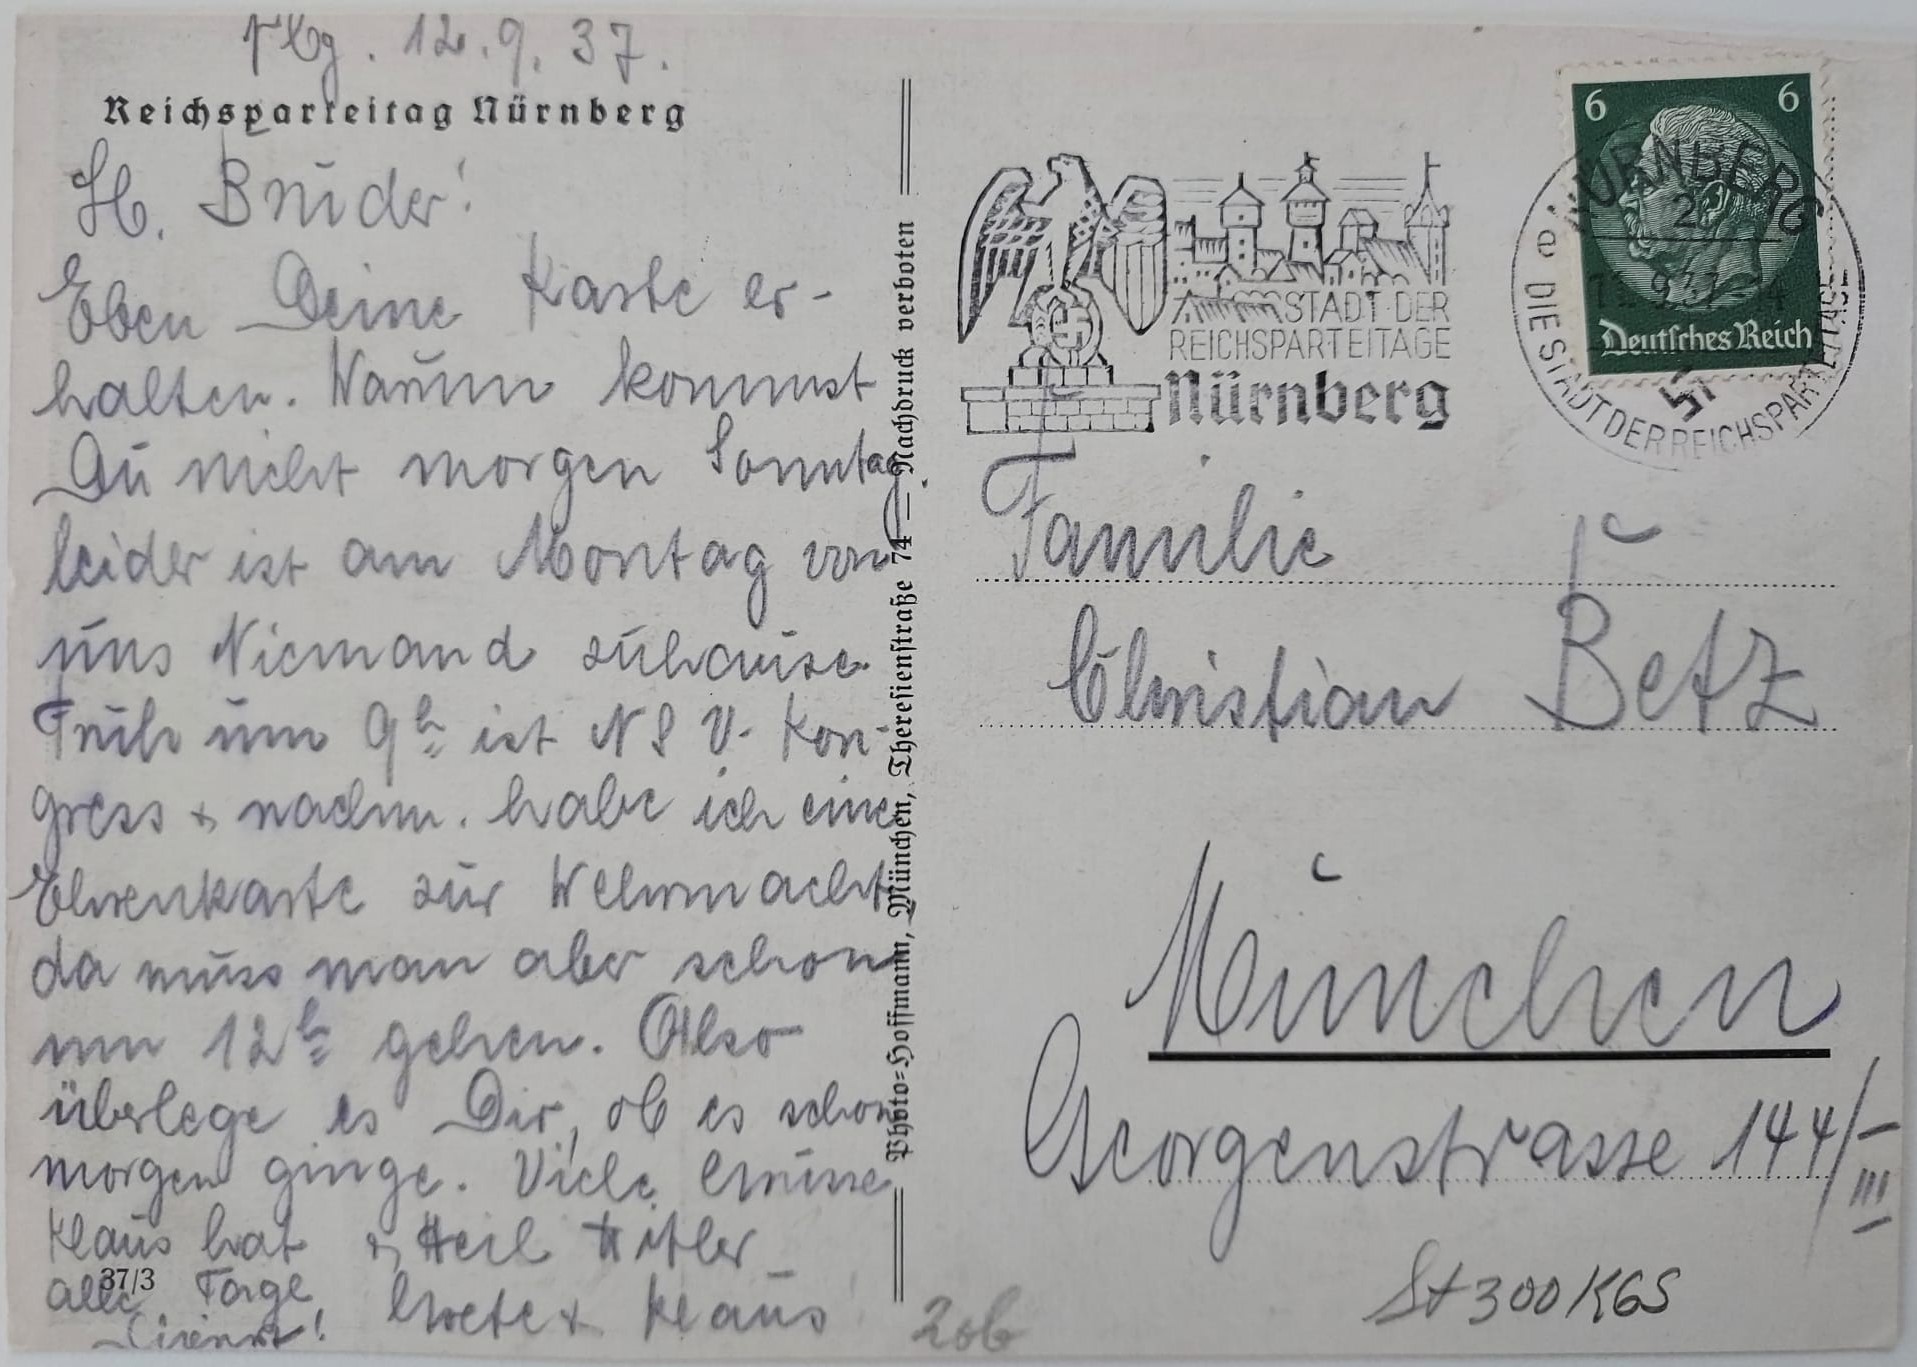 Nbg. 12.9.37.
Reichsparteitag Nürnberg
Lb. Bruder!
Eben Deine Karte er-
halten. Warum kommst
Du nicht morgen Sonntag
leider ist am Montag von
uns Niemand zuhause.
Früh um 9h ist N S V- Kon-
gress & nachm. habe ich eine
Ehrenkarte zur Wehrmacht
da muss man aber schon
um 12h gehen. Also
überlege es Dir, ob es schon
morgen ginge. Viele Grüsse
& Heil Hitler
Grete & Klaus
Klaus hat
alle Tage
Dienst!
37/3
Photo=Hoffmann, München, Theresienstraße 74 — Nachdruck verboten
STADT DER
REICHSPARTEITAGE
Nürnberg
6 6
Deutsches Reich
NÜRNBERG
2
9.37
DIE STADT DER REICHSPARTEITAGE
Familie
Christian Betz
München
Georgenstrasse 144/III
St 300 KGS